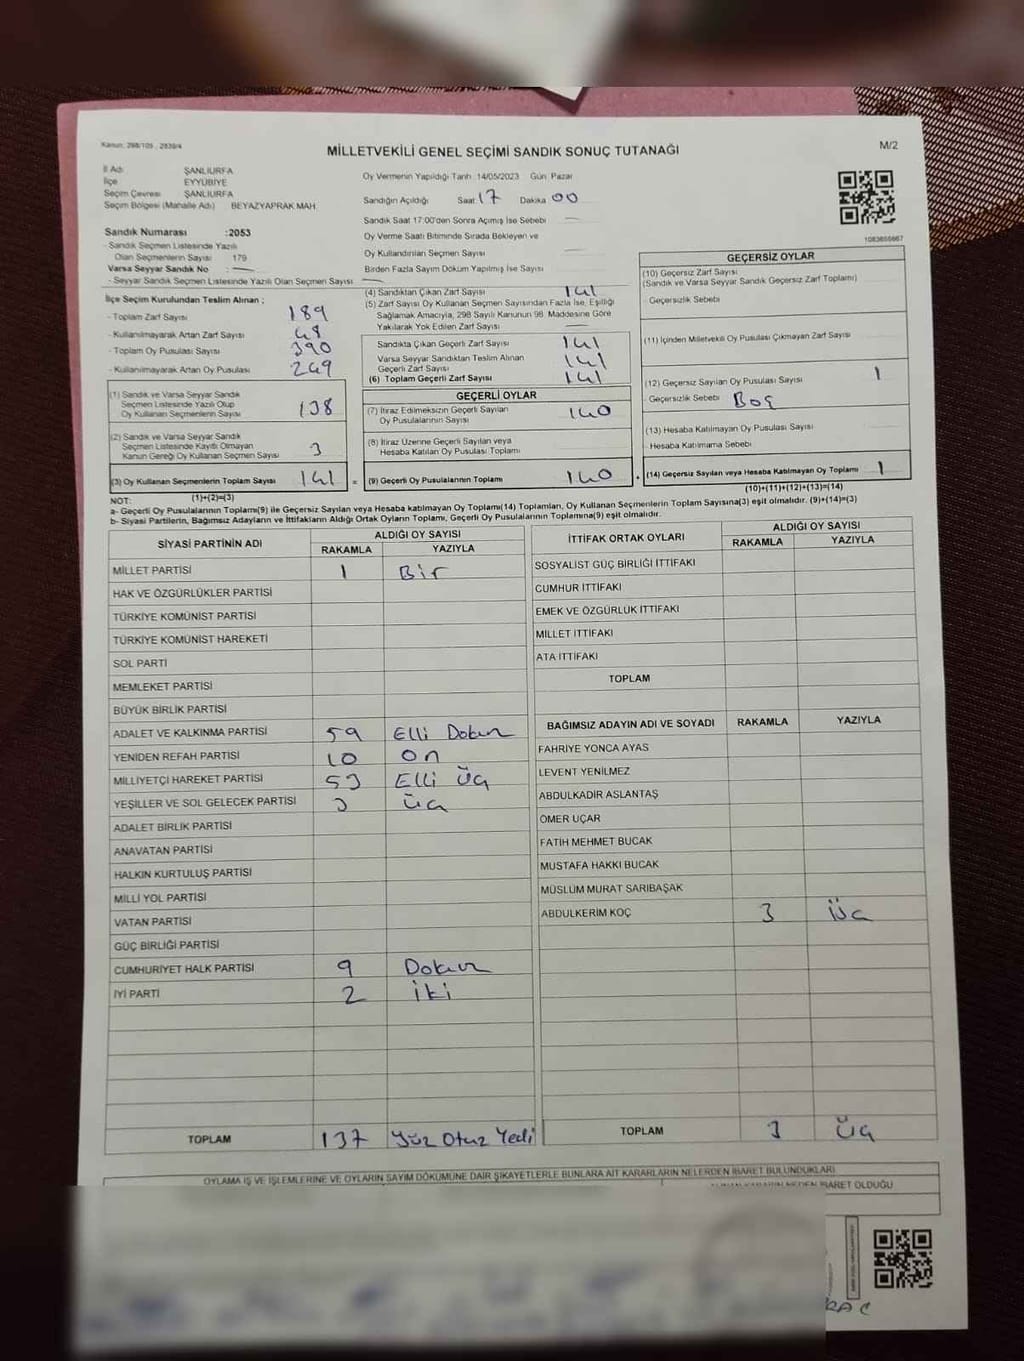 Kanun: 298/105 , 2839/4
MİLLETVEKİLİ GENEL SEÇİMİ SANDIK SONUÇ TUTANAĞI
M/2
İl Adı ŞANLIURFA
İlçe EYYÜBİYE
Seçim Çevresi ŞANLIURFA
Seçim Bölgesi (Mahalle Adı) BEYAZYAPRAK MAH.
Sandık Numarası :2053
- Sandık Seçmen Listesinde Yazılı
Olan Seçmenlerin Sayısı 179
Varsa Seyyar Sandık No : —
- Seyyar Sandık Seçmen Listesinde Yazılı Olan Seçmen Sayısı —
Oy Vermenin Yapıldığı Tarih 14/05/2023 Gün Pazar
Sandığın Açıldığı Saat 17 Dakika 00
Sandık Saat 17:00'den Sonra Açımış İse Sebebi —
Oy Verme Saati Bitiminde Sırada Bekleyen ve
Oy Kullandırılan Seçmen Sayısı —
Birden Fazla Sayım Döküm Yapılmış İse Sayısı —
1083655667
İlçe Seçim Kurulundan Teslim Alınan ;
- Toplam Zarf Sayısı 189
- Kullanılmayarak Artan Zarf Sayısı 48
- Toplam Oy Pusulası Sayısı 390
- Kullanılmayarak Artan Oy Pusulası 249
(1) Sandık ve Varsa Seyyar Sandık
Seçmen Listesinde Yazılı Olup
Oy Kullanan Seçmenlerin Sayısı 138
(2) Sandık ve Varsa Seyyar Sandık
Seçmen Listesinde Kayıtlı Olmayan
Kanun Gereği Oy Kullanan Seçmen Sayısı 3
(3) Oy Kullanan Seçmenlerin Toplam Sayısı 141 =
(1)+(2)=(3)
(4) Sandıktan Çıkan Zarf Sayısı 141
(5) Zarf Sayısı Oy Kullanan Seçmen Sayısından Fazla İse, Eşitliği
Sağlamak Amacıyla, 298 Sayılı Kanunun 98. Maddesine Göre
Yakılarak Yok Edilen Zarf Sayısı —
Sandıkta Çıkan Geçerli Zarf Sayısı 141
Varsa Seyyar Sandıktan Teslim Alınan
Geçerli Zarf Sayısı 141
(6) Toplam Geçerli Zarf Sayısı 141
GEÇERLİ OYLAR
(7) İtiraz Edilmeksizin Geçerli Sayılan
Oy Pusulalarının Sayısı 140
(8) İtiraz Üzerine Geçerli Sayılan veya
Hesaba Katılan Oy Pusulası Toplamı
(9) Geçerli Oy Pusulalarının Toplamı 140
GEÇERSİZ OYLAR
(10) Geçersiz Zarf Sayısı
(Sandık ve Varsa Seyyar Sandık Geçersiz Zarf Toplamı)
- Geçersizlik Sebebi
(11) İçinden Milletvekili Oy Pusulası Çıkmayan Zarf Sayısı
(12) Geçersiz Sayılan Oy Pusulası Sayısı 1
- Geçersizlik Sebebi Boş
(13) Hesaba Katılmayan Oy Pusulası Sayısı
- Hesaba Katılmama Sebebi
(14) Geçersiz Sayılan veya Hesaba Katılmayan Oy Toplamı 1
(10)+(11)+(12)+(13)=(14)
NOT:
a- Geçerli Oy Pusulalarının Toplamı(9) ile Geçersiz Sayılan veya Hesaba katılmayan Oy Toplamı(14) Toplamları, Oy Kullanan Seçmenlerin Toplam Sayısına(3) eşit olmalıdır. (9)+(14)=(3)
b- Siyasi Partilerin, Bağımsız Adayların ve İttifakların Aldığı Ortak Oyların Toplamı, Geçerli Oy Pusulalarının Toplamına(9) eşit olmalıdır.
SİYASİ PARTİNİN ADI ALDIĞI OY SAYISI
RAKAMLA YAZIYLA
MİLLET PARTİSİ 1 Bir
HAK VE ÖZGÜRLÜKLER PARTİSİ
TÜRKİYE KOMÜNİST PARTİSİ
TÜRKİYE KOMÜNİST HAREKETİ
SOL PARTİ
MEMLEKET PARTİSİ
BÜYÜK BİRLİK PARTİSİ
ADALET VE KALKINMA PARTİSİ 59 Elli Dokuz
YENİDEN REFAH PARTİSİ 10 On
MİLLİYETÇİ HAREKET PARTİSİ 53 Elli Üç
YEŞİLLER VE SOL GELECEK PARTİSİ 3 Üç
ADALET BİRLİK PARTİSİ
ANAVATAN PARTİSİ
HALKIN KURTULUŞ PARTİSİ
MİLLİ YOL PARTİSİ
VATAN PARTİSİ
GÜÇ BİRLİĞİ PARTİSİ
CUMHURİYET HALK PARTİSİ 9 Dokuz
İYİ PARTİ 2 İki
TOPLAM 137 Yüz Otuz Yedi
İTTİFAK ORTAK OYLARI ALDIĞI OY SAYISI
RAKAMLA YAZIYLA
SOSYALİST GÜÇ BİRLİĞİ İTTİFAKI
CUMHUR İTTİFAKI
EMEK VE ÖZGÜRLÜK İTTİFAKI
MİLLET İTTİFAKI
ATA İTTİFAKI
TOPLAM
BAĞIMSIZ ADAYIN ADI VE SOYADI RAKAMLA YAZIYLA
FAHRİYE YONCA AYAS
LEVENT YENİLMEZ
ABDULKADİR ASLANTAŞ
ÖMER UÇAR
FATİH MEHMET BUCAK
MUSTAFA HAKKI BUCAK
MÜSLÜM MURAT SARIBAŞAK
ABDULKERİM KOÇ 3 Üç
TOPLAM 3 Üç
OYLAMA İŞ VE İŞLEMLERİNE VE OYLARIN SAYIM DÖKÜMÜNE DAİR ŞİKAYETLERLE BUNLARA AİT KARARLARIN NELERDEN İBARET BULUNDUKLARI
NEDEN İBARET OLDUĞU